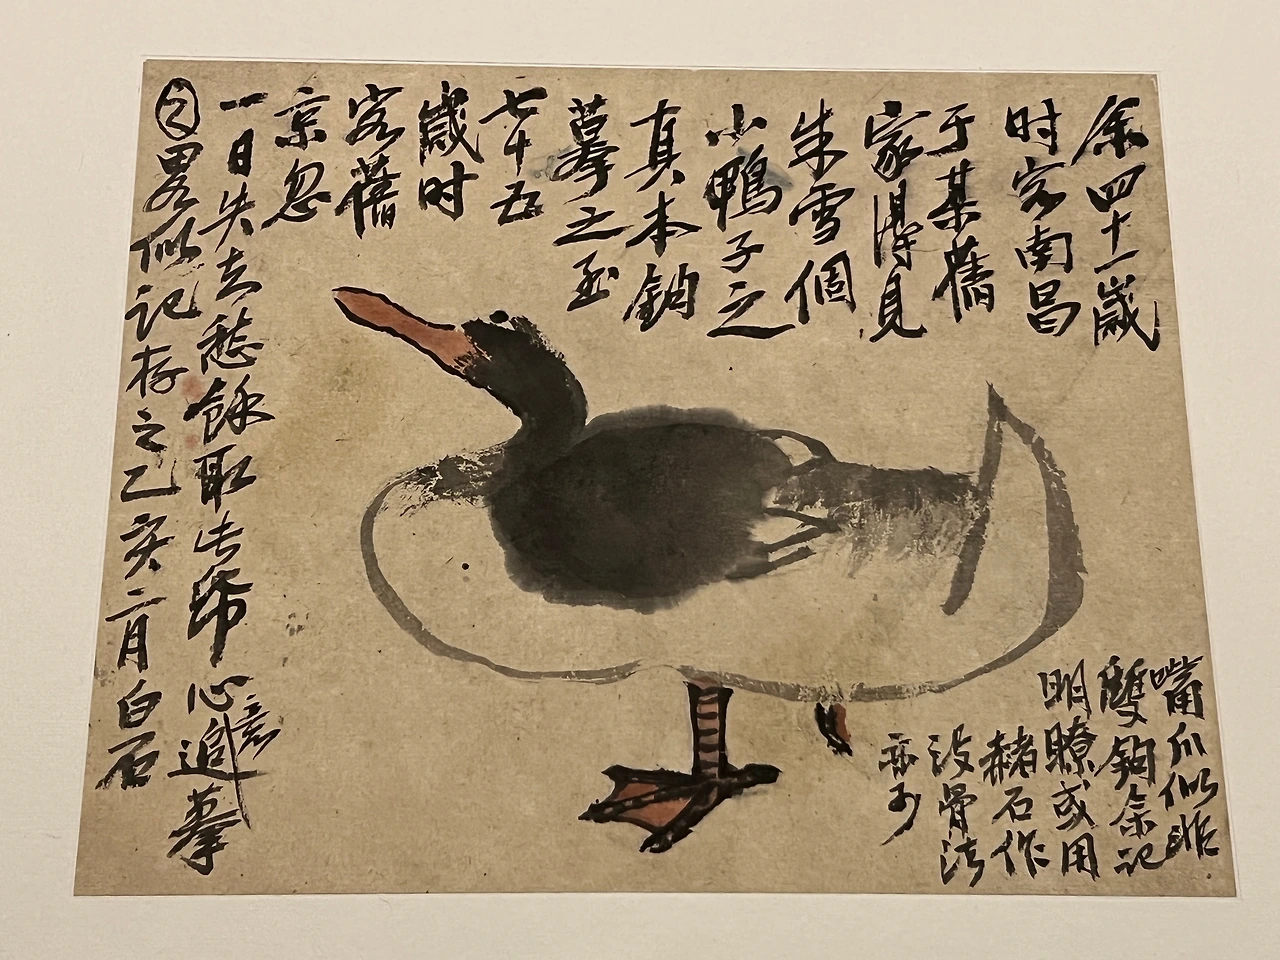 余四十一歲
时客南昌
于某舊
家得見
朱雪個
小鴨子之
真本鈎
摹之至
七十五
歲时
客舊
京忽
一日失去愁餘取此帋心意追摹
之畧似記存之乙亥二月白石
嘴爪似非
雙鉤余記
明瞭或用
赭石作
没骨法
亦可